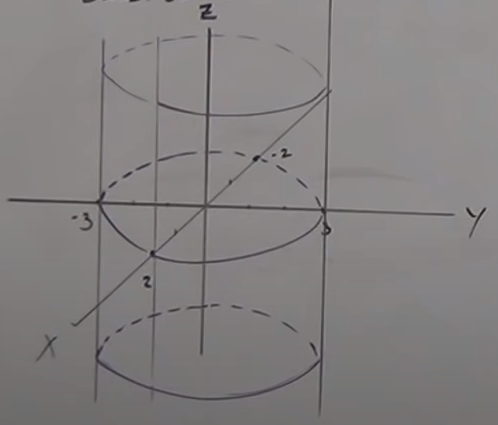 Z
-2
-3
3
Y
2
X